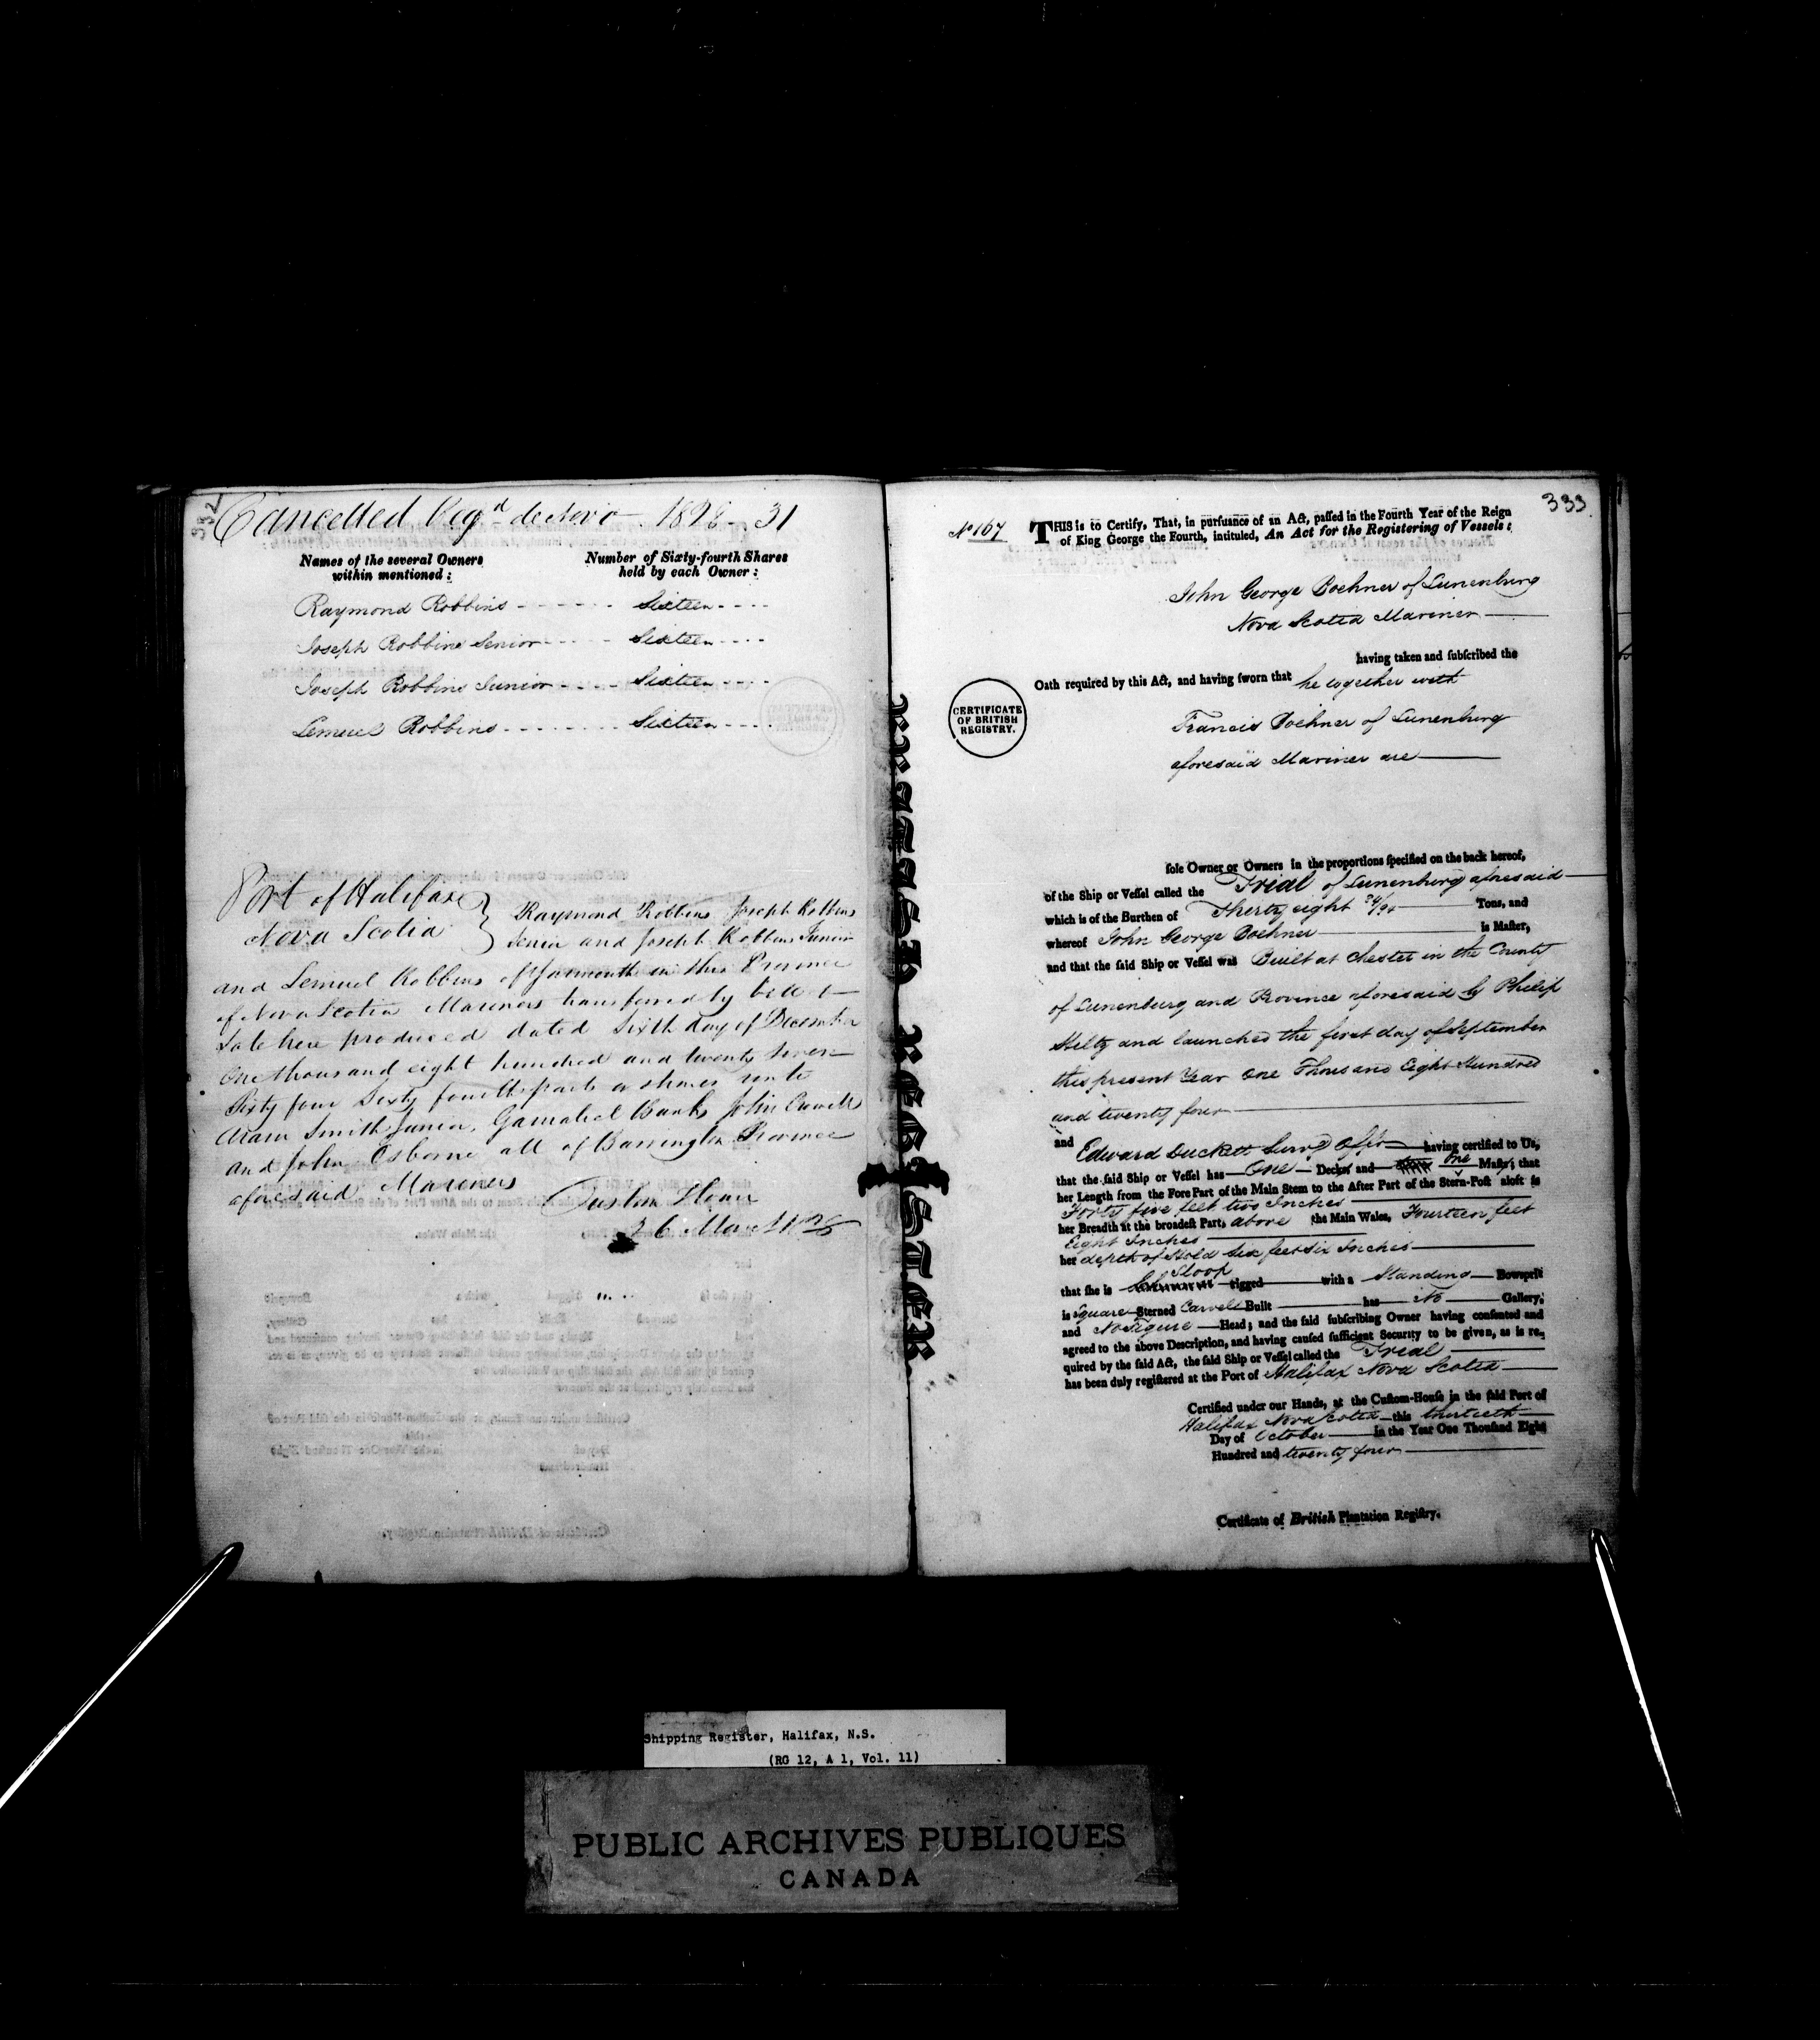 332
Cancelled Regd de Novo 1828 - 31
Names of the several Owners within mentioned:
Number of Sixty-fourth Shares held by each Owner:
Raymond Robbins - - - - - - Sixteen - - - -
Joseph Robbins Senior - - - - - Sixteen - - - -
Joseph Robbins Junior - - - - Sixteen - - - -
Lemuel Robbins - - - - - - - - Sixteen - - - -
Port of Halifax
Nova Scotia
} Raymond Robbins Joseph Robbins
Senior and Joseph Robbins Junior
and Lemuel Robbins of Yarmouth in this Province
of Nova Scotia Mariners transferred by bill of
Sale here produced dated Sixth day of December
One thousand eight hundred and twenty seven
Sixty four Sixty fourth parts or shares unto
Smith Junior, Gamaliel Banks John Crowell
and John Osborne all of Barrington Province
aforesaid Mariners
26 March 1828
BRITISH REGISTER
333
No 167
THIS is to Certify, That, in pursuance of an Act, passed in the Fourth Year of the Reign
of King George the Fourth, intituled, An Act for the Registering of Vessels:
John George Boehner of Lunenburg
Nova Scotia Mariner
having taken and subscribed the
Oath required by this Act, and having sworn that he together with
CERTIFICATE
OF BRITISH
REGISTRY.
Francis Boehner of Lunenburg
aforesaid Mariner are
sole Owner or Owners in the proportions specified on the back hereof,
of the Ship or Vessel called the Trial of Lunenburg aforesaid
which is of the Burthen of Thirty eight 24/94 Tons, and
whereof John George Boehner is Master,
and that the said Ship or Vessel was Built at Chester in the County
of Lunenburg and Province aforesaid by Philip
Heltz and launched the first day of September
this present Year One Thousand Eight Hundred
and twenty four
and Edward Duckett Survg Offr having certified to Us,
that the said Ship or Vessel has One Decks and One Mast; that
her Length from the Fore Part of the Main Stem to the After Part of the Stern-Post aloft is
Forty five feet two Inches
her Breadth at the broadest Part, above the Main Wales, Fourteen feet
Eight Inches
her depth of Hold Six feet six Inches
Sloop
that she is rigged with a Standing Bowsprit
is Square Sterned Carvel Built has No Gallery;
and No Figure Head; and the said subscribing Owner having consented and
agreed to the above Description, and having caused sufficient Security to be given, as is re-
quired by the said Act, the said Ship or Vessel called the Trial
has been duly registered at the Port of Halifax Nova Scotia
Certified under our Hands, at the Custom-House in the said Port of
Halifax Nova Scotia this thirtieth
Day of October in the Year One Thousand Eight
Hundred and twenty four
Certificate of British Plantation Registry.
Shipping Register, Halifax, N.S.
(RG 12, A 1, Vol. 11)
PUBLIC ARCHIVES PUBLIQUES
CANADA